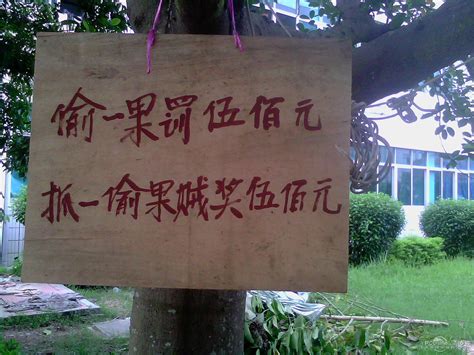 偷一果罚伍佰元
抓一偷果贼奖伍佰元